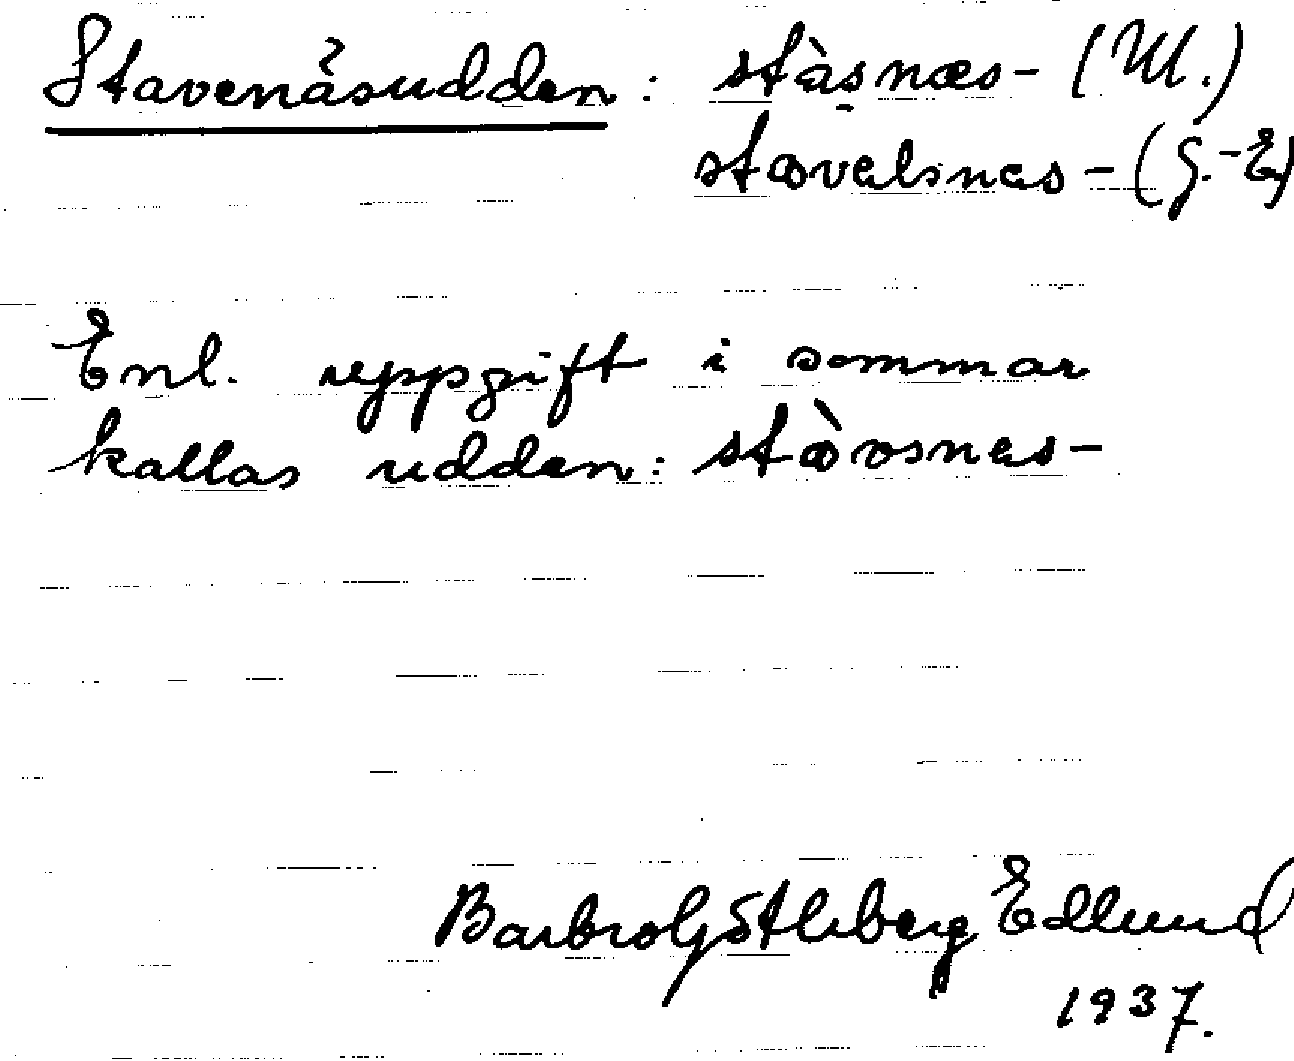 Stavenäsudden: stàsnæs- (Ul.)
stavelsnes - (G.-E)
Enl. uppgift i sommar
kallas udden: stàvsnes-
Barbro Götleberg Edlund
1937.